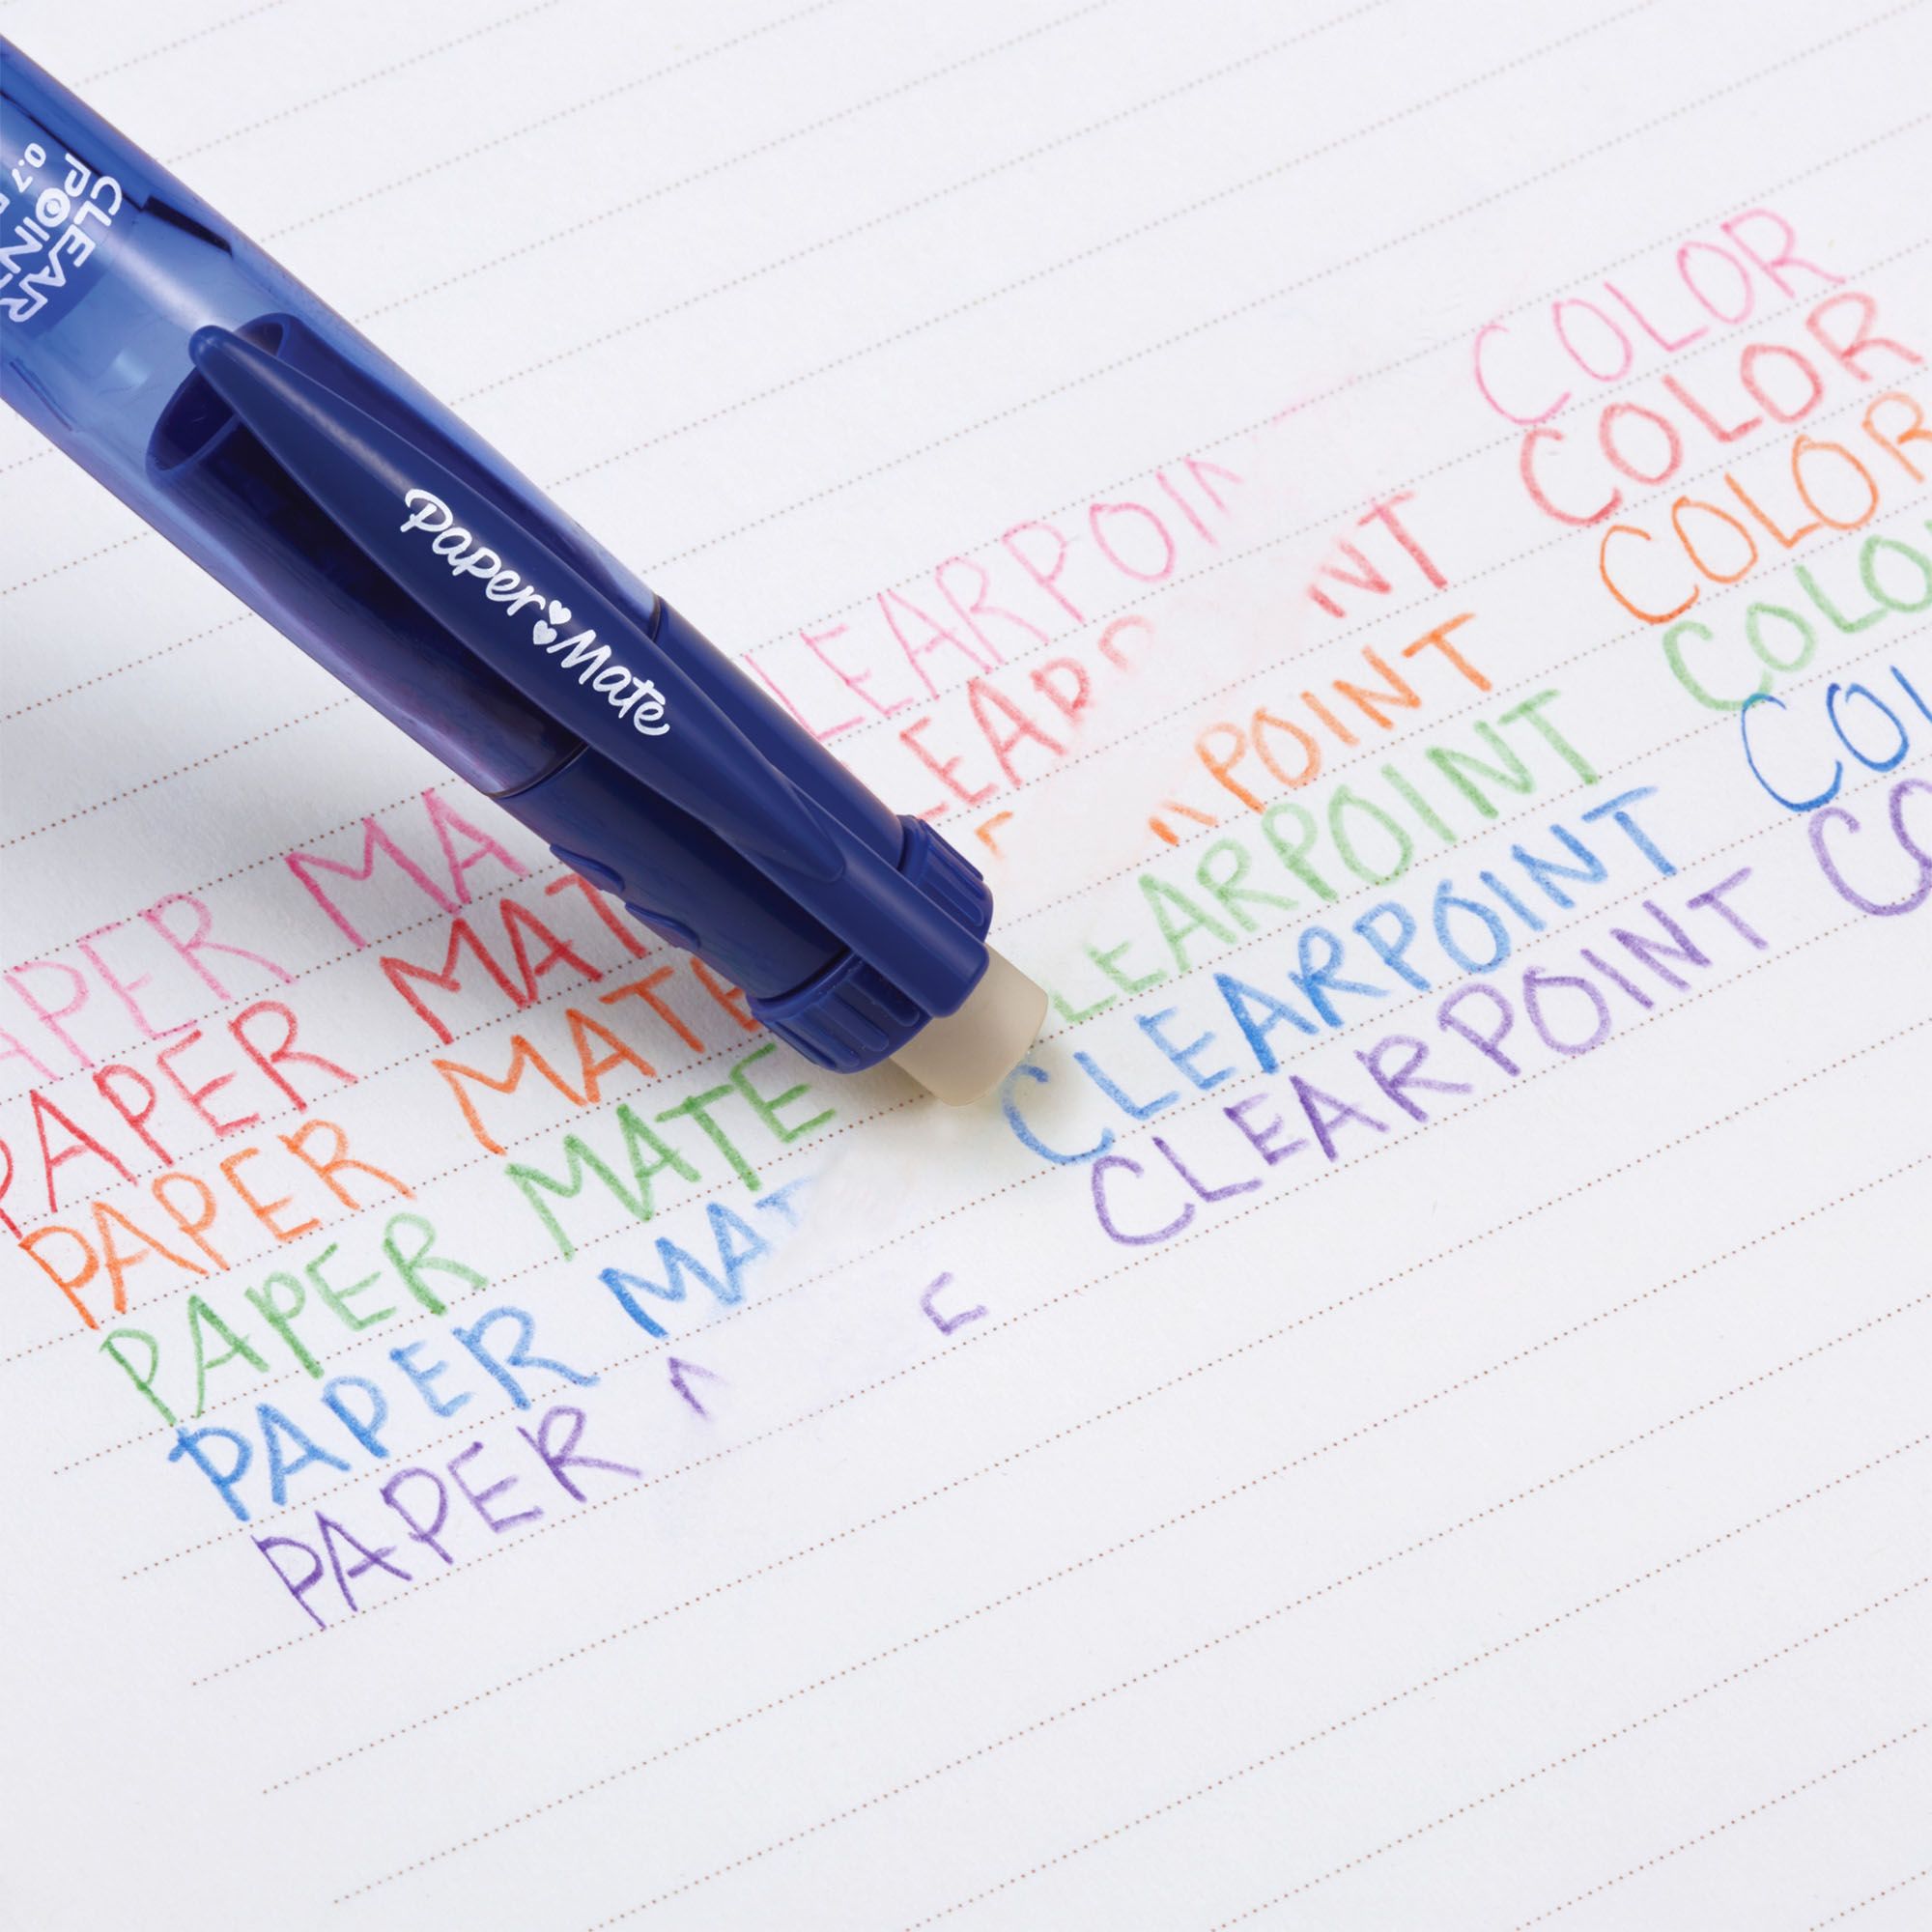 CLEAR
POINT
0.7
Paper Mate
APER MA LEARPOIN COLOR
PAPER MAT LEAR NT COLOR
PAPER MATE POINT COLOR
PAPER MATE LEARPOINT COLO
PAPER MAT CLEARPOINT COL
PAPER E CLEARPOINT CO